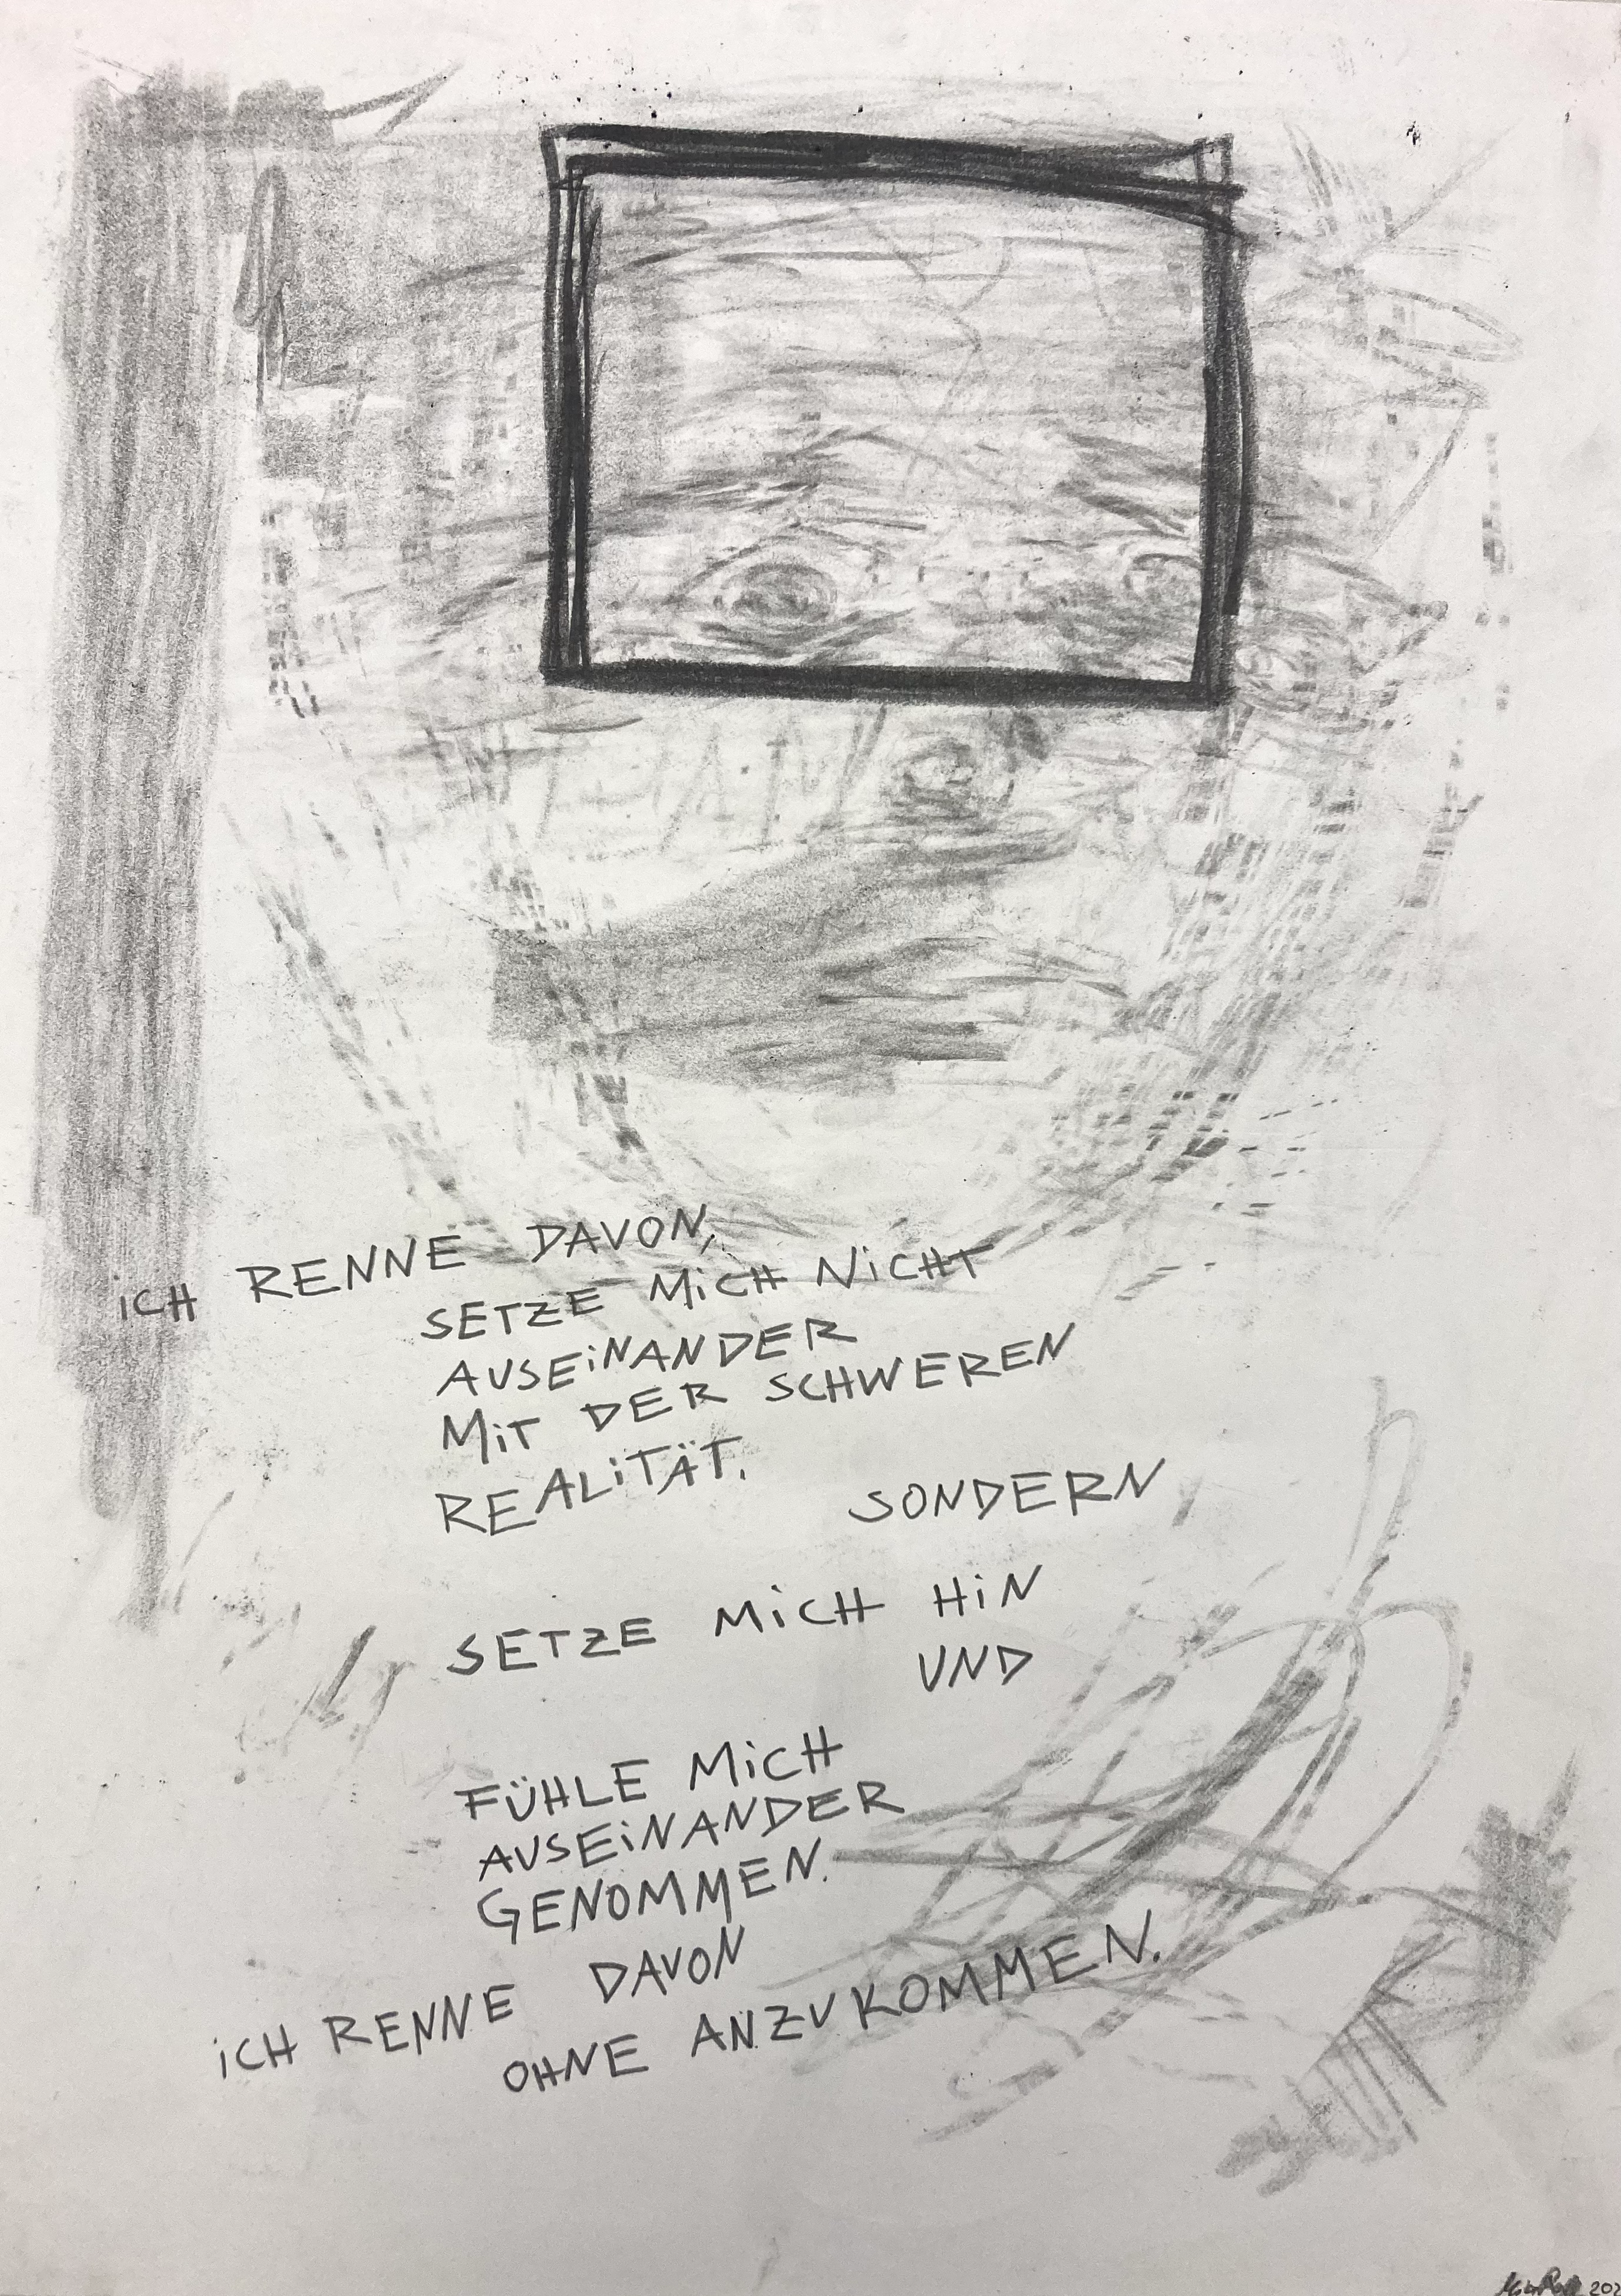 iCH RENNE DAVON,
SETZE MiCH NiCHT
AUSEiNANDER
MiT DER SCHWEREN
REALiTÄT.
SONDERN
SETZE MiCH HiN
UND
FÜHLE MiCH
AUSEiNANDER
GENOMMEN.
iCH RENNE DAVON
OHNE ANZUKOMMEN.